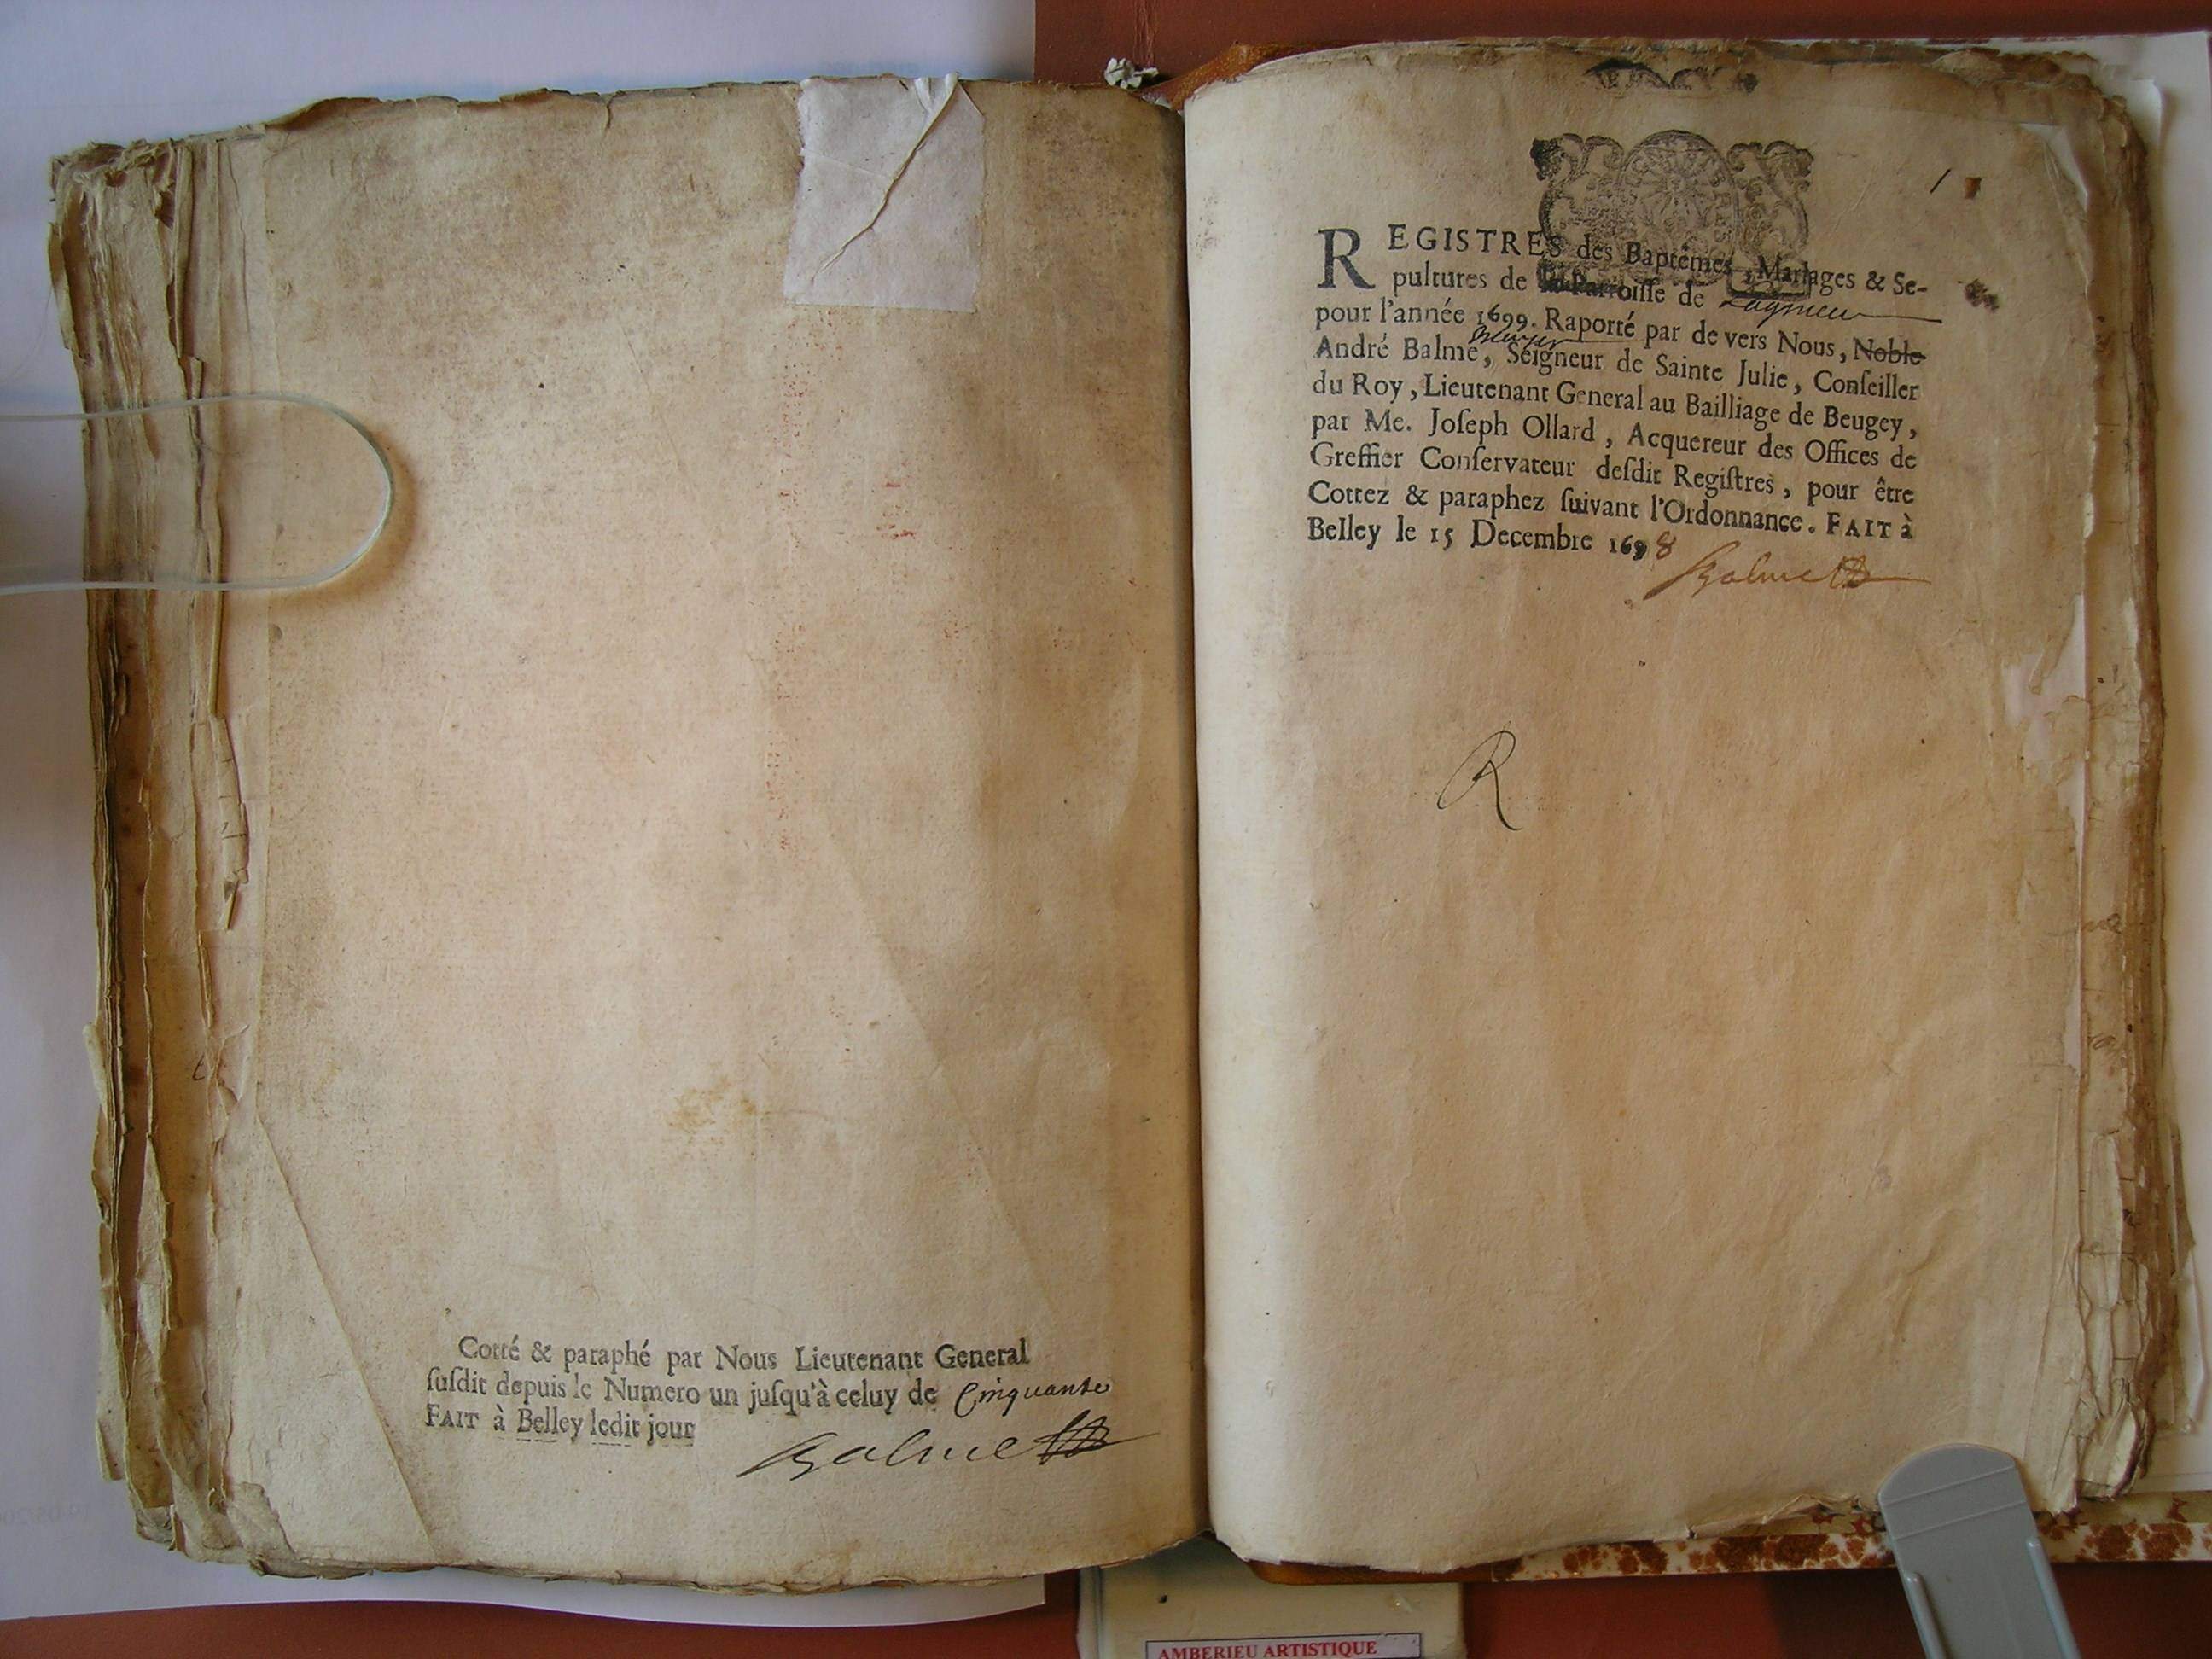 Cotté & paraphé par Nous Lieutenant General
susdit depuis le Numero un jusqu'à celuy de Cinquante
FAIT à Belley ledit jour
Balme
1
REGISTRES des Baptêmes, Mariages & Se-
pultures de la Parroisse de Lagnieu
pour l'année 1699. Raporté par de vers Nous, Noble
André Balme, Seigneur de Sainte Julie, Conseiller
du Roy, Lieutenant General au Bailliage de Beugey,
par Me. Joseph Ollard, Acquereur des Offices de
Greffier Conservateur desdit Registres, pour être
Cottez & paraphez suivant l'Ordonnance. FAIT à
Belley le 15 Decembre 1698
Balme
R
AMBERIEU ARTISTIQUE